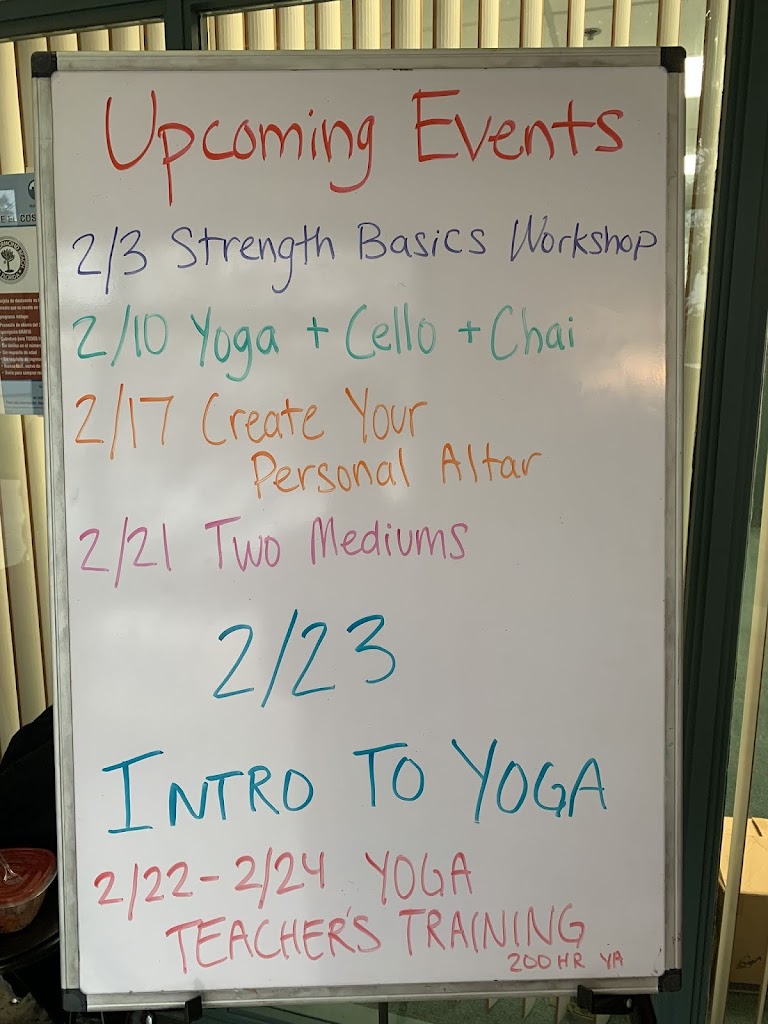 Upcoming Events
2/3 Strength Basics Workshop
2/10 Yoga + Cello + Chai
2/17 Create Your
Personal Altar
2/21 Two Mediums
2/23
INTRO TO YOGA
2/22-2/24 YOGA
TEACHER'S TRAINING
200 HR YA